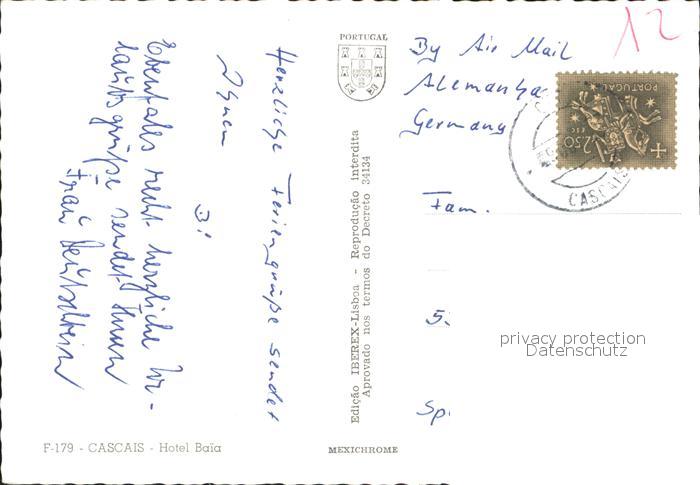 12
PORTUGAL
By Air Mail
Alemanha
Germany
PORTUGAL
2$50
ESC
CASCAIS
Fam.
5
Sp
privacy protection
Datenschutz
Herzliche Feriengrüße sendet
Ihnen
Bi
Ebenfalls recht herzliche Ur-
laubsgrüße sendet Ihnen
Frau
Edição IBEREX-Lisboa - Reprodução interdita
Aprovado nos termos do Decreto 34134
F-179 - CASCAIS - Hotel Baïa
MEXICHROME